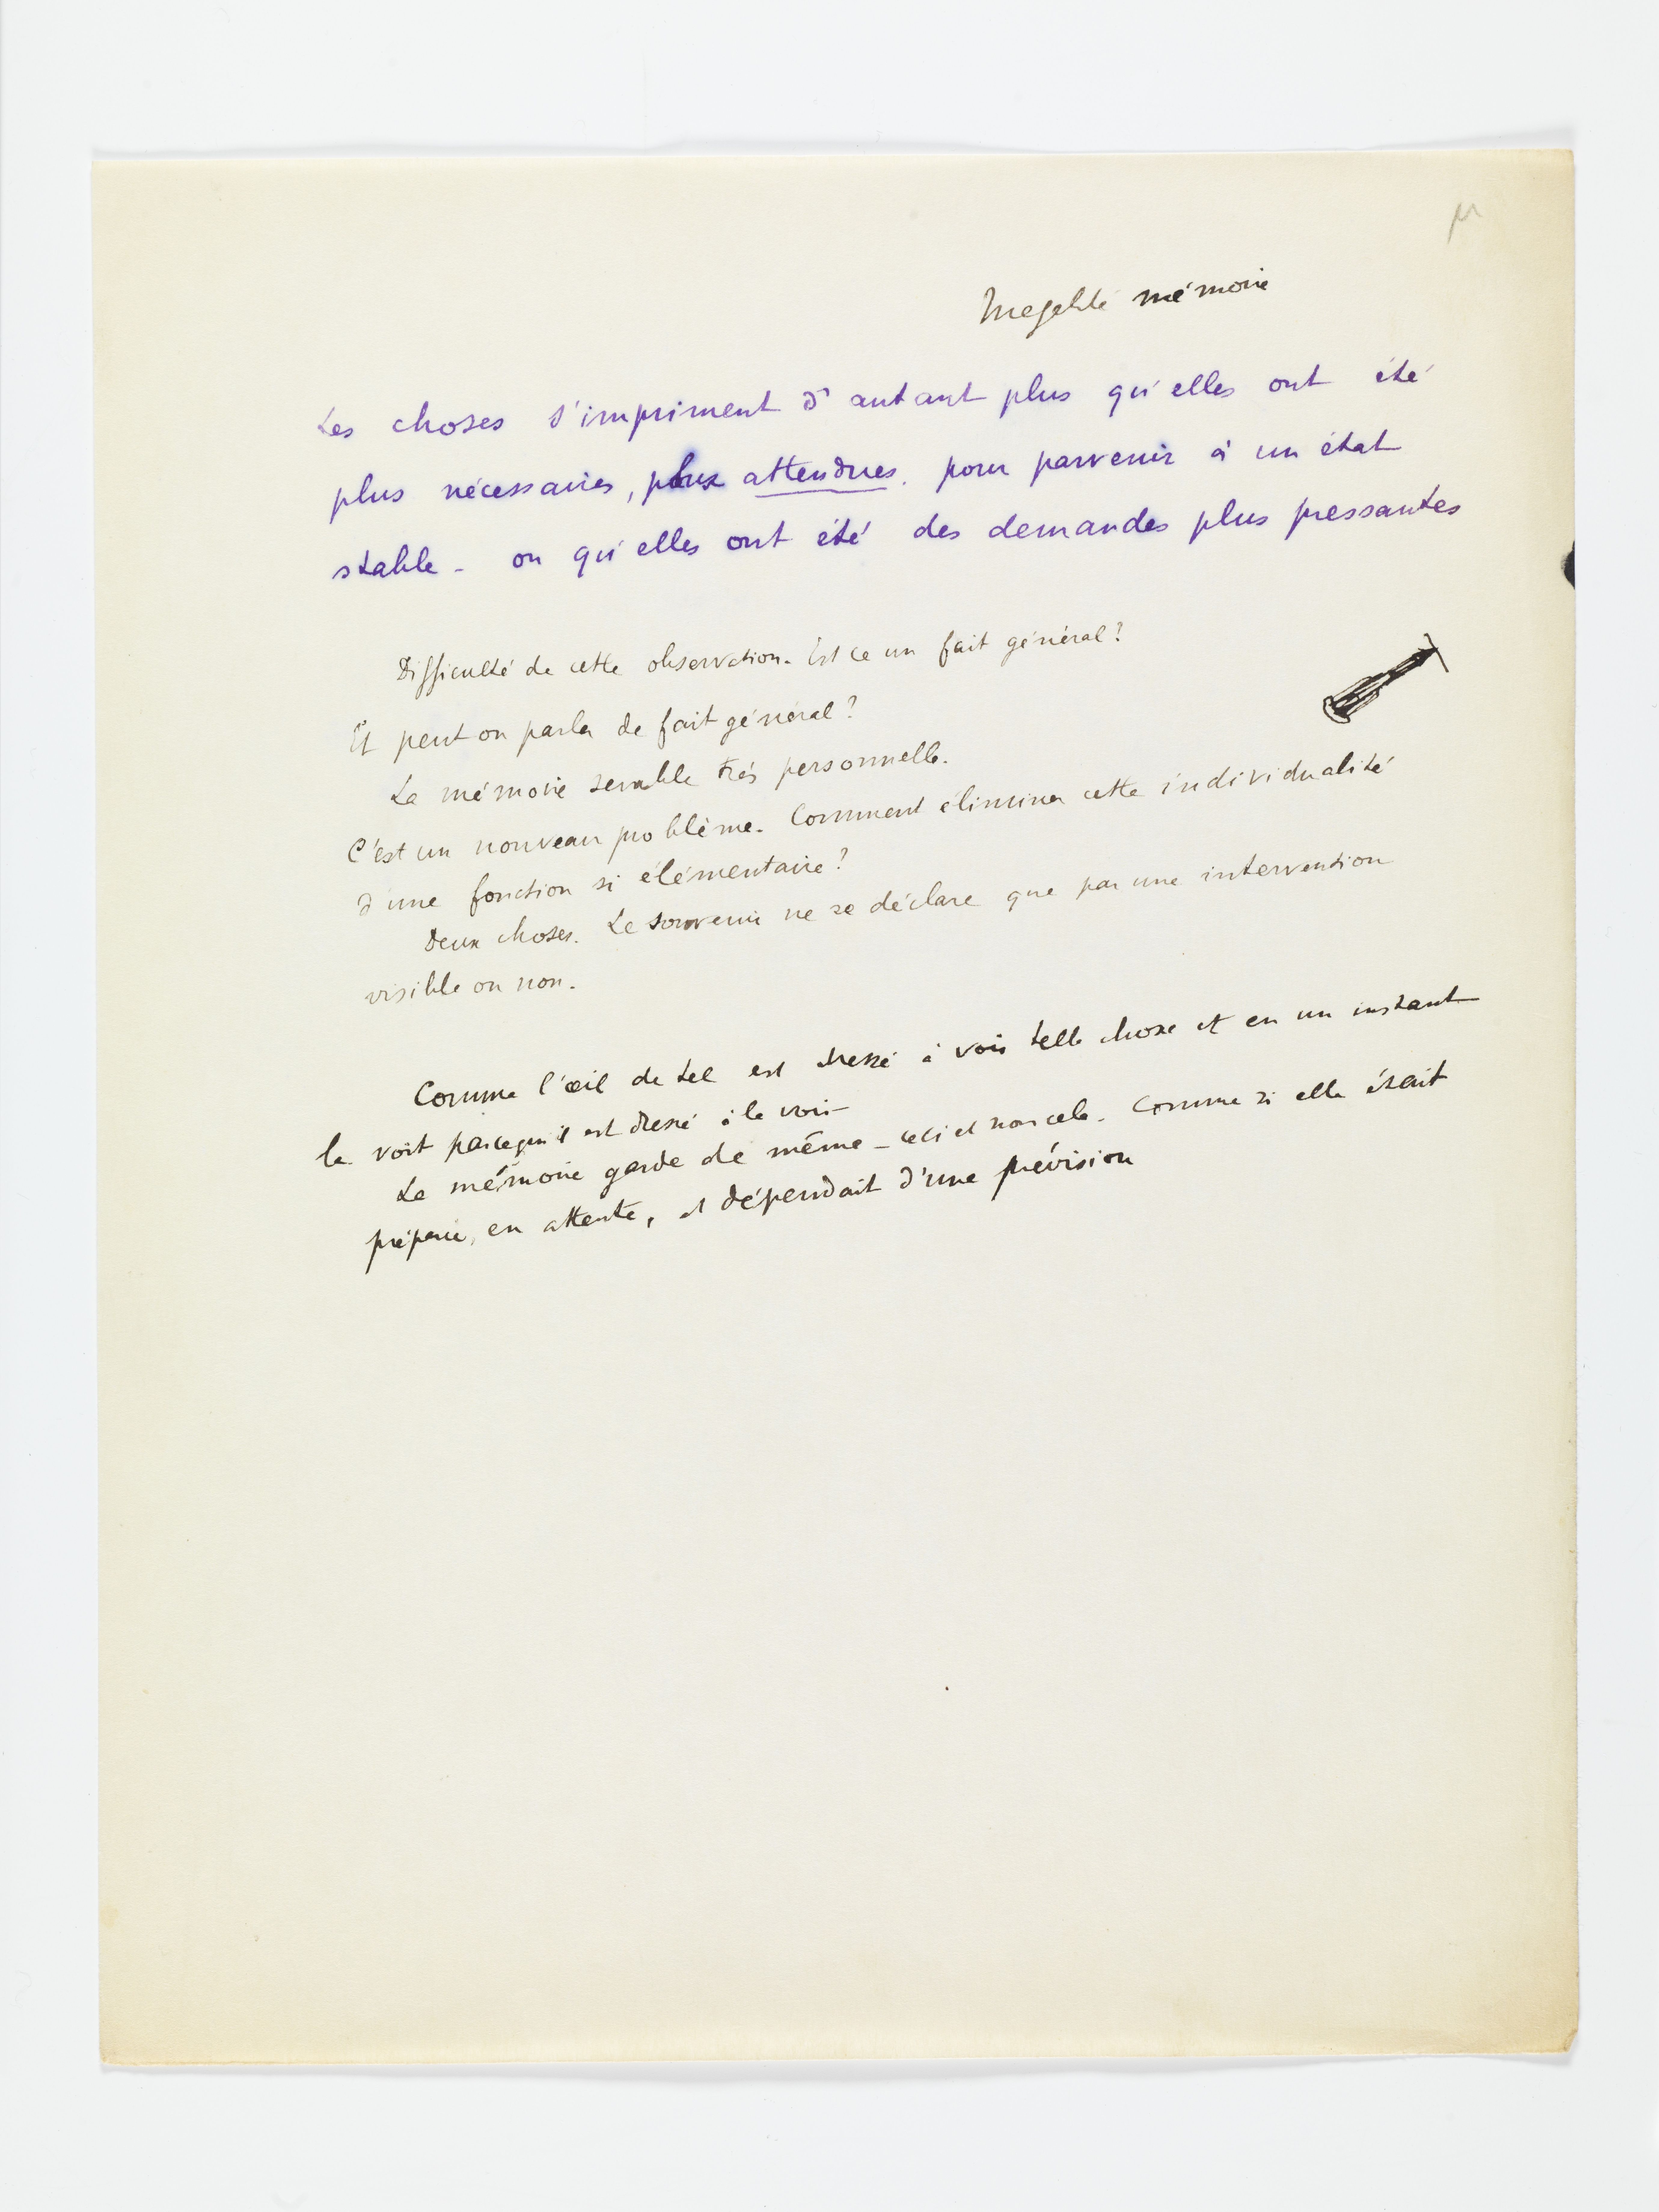 μ
Inégalité mémoire
Les choses s'impriment d'autant plus qu'elles ont été
plus nécessaires, plus attendues. pour parvenir à un état
stable - ou qu'elles ont été des demandes plus pressantes
Difficulté de cette observation. Est ce un fait général?
Et peut on parler de fait général?
La mémoire semble très personnelle.
C'est un nouveau problème. Comment éliminer cette individualité
d'une fonction si élémentaire?
Deux choses. Le souvenir ne se déclare que par une intervention
visible ou non.
Comme l'œil de tel est dressé à voir telle chose et en un instant
la voit parcequ'il est dressé à la voir -
La mémoire garde de même - ceci et non cela. Comme si elle était
préparée, en attente, et dépendait d'une prévision